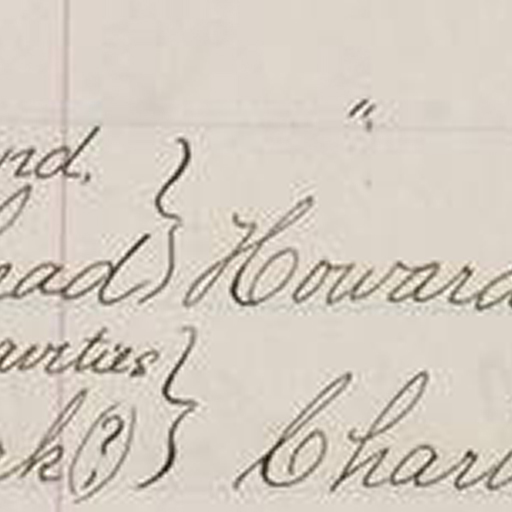 "
nd,
ead } Howard
urties
rk(?) } Charl